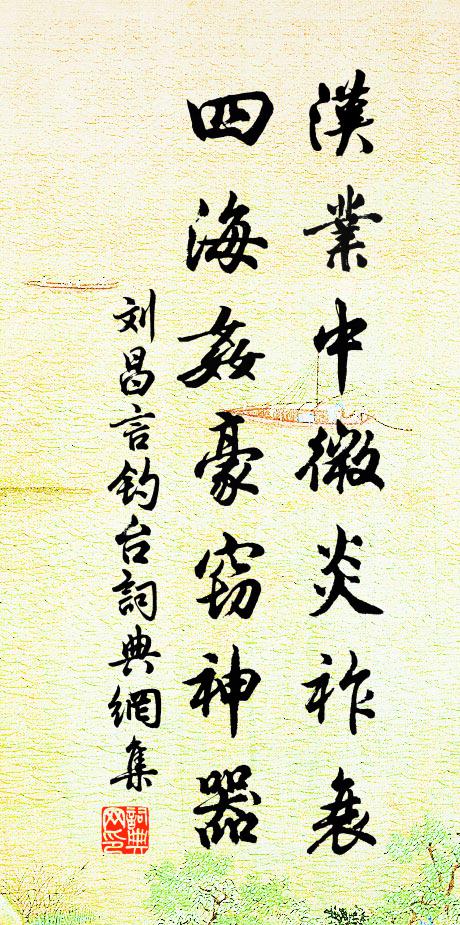 漢業中微炎祚衰
四海姦豪窃神器
刘昌言钓台詞典網集
詞典
网印